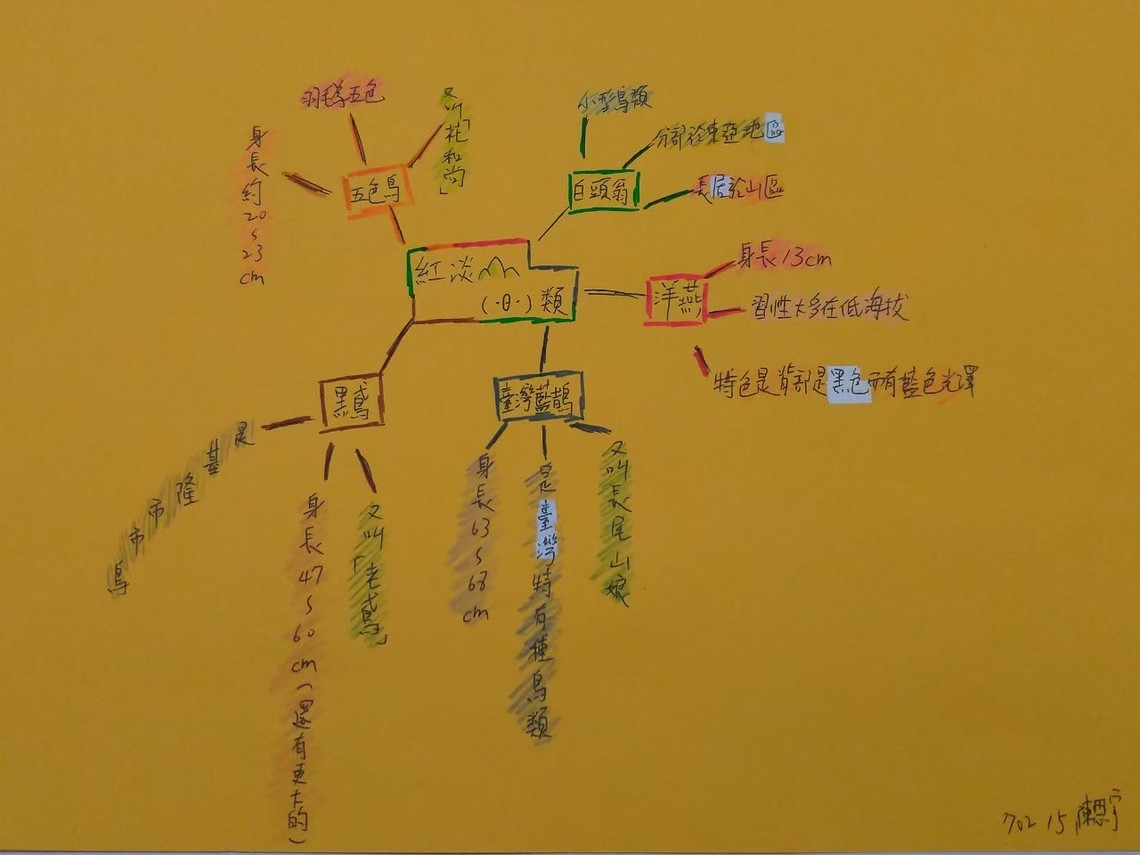 紅淡
(·θ·)類
五色鳥
羽毛為五色
又叫「花和尚」
身長約20~23cm
白頭翁
小型鳥類
分部於東亞地區
長居於山區
洋燕
身長13cm
習性大多在低海拔
特色是背部是黑色而有藍色光澤
臺灣藍鵲
身長63~68cm
是臺灣特有種鳥類
又叫長尾山娘
黑鳶
是基隆市市鳥
身長47~60cm(還有更大的)
又叫「老鳶」
702 15 陳思宇